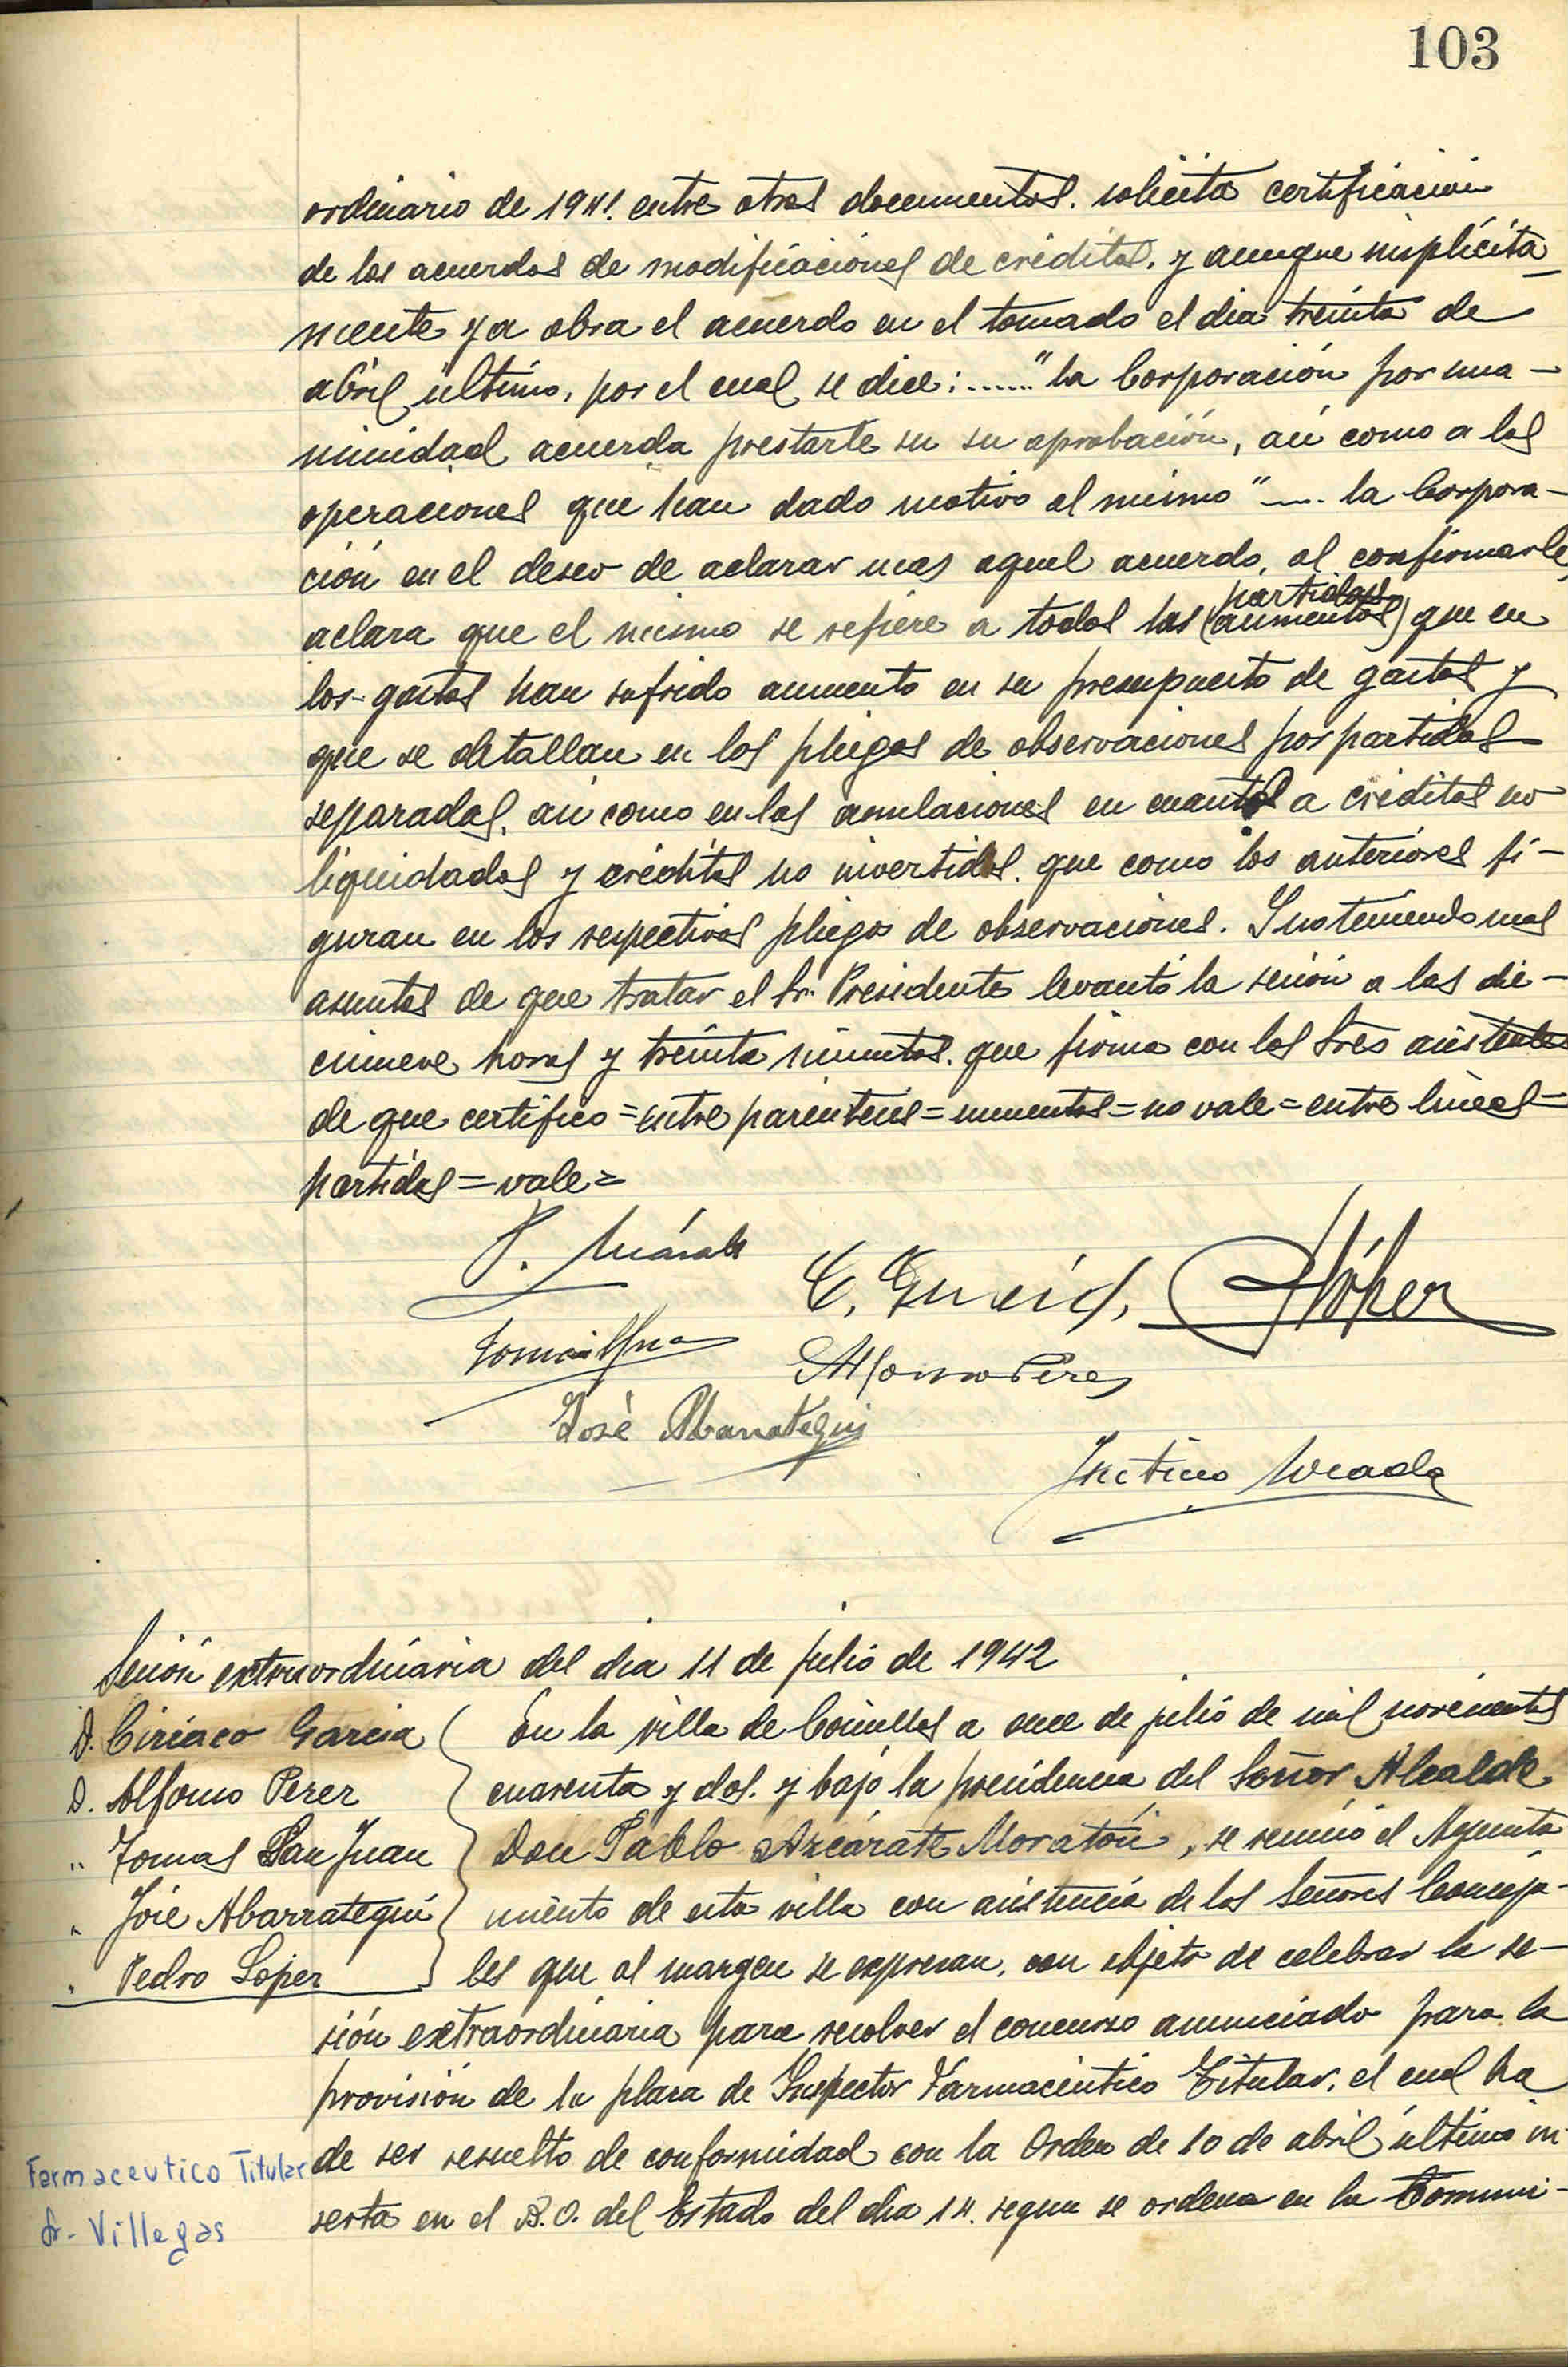 103
ordinario de 1941. entre otros documentos. solicita certificación
de los acuerdos de modificaciones de créditos. y aunque implícita
mente ya obra el acuerdo en el tomado el dia treinta de
abril último, por el cual se dice: ...... "la Corporación por una-
nimidad acuerda prestarle su su aprobación, así como a las
operaciones que han dado motivo al mismo" .... la Corpora-
ción en el deseo de aclarar mas aquel acuerdo, al confirmarle,
partidas
aclara que el mismo se refiere a todas las (aumentos) que en
los gastos han sufrido aumento en su presupuesto de gastos y
que se detallan en los pliegos de observaciones por partidas
separadas, asi como en las anulaciones en cuantos a créditos no
liquidados y créditos no invertidos. que como los anteriores fi-
guran en los respectivos pliegos de observaciones. Y no teniendo mas
asuntos de que tratar el Sr. Presidente levantó la sesión a las die-
cinueve horas y treinta minutos. que firma con los Sres asistentes
de que certifico = entre parentesis = aumentos = no vale = entre lineas =
partidas = vale =
C. García
López
Alfonso Perez
José Abarrategui
Sesión extraordinaria del dia 11 de julio de 1942
D. Ciriaco Garcia
D. Alfonso Perez
" Tomas San Juan
" José Abarrategui
" Pedro Lopez
En la villa de Comillas a once de julio de mil novecientos
cuarenta y dos. y bajo la presidencia del Señor Alcalde
Don Pablo Azcárate Moratón, se reunió el Ayunta
miento de esta villa con asistencia de los Señores Conceja-
les que al margen se expresan, con objeto de celebrar la se-
sión extraordinaria para resolver el concurso anunciado para la
provisión de la plaza de Inspector Farmacéutico Titular, el cual ha
de ser resuelto de conformidad con la Orden de 10 de abril último in-
serta en el B.O. del Estado del dia 14. segun se ordena en la Comuni-
Farmaceutico Titular
Sr. Villegas